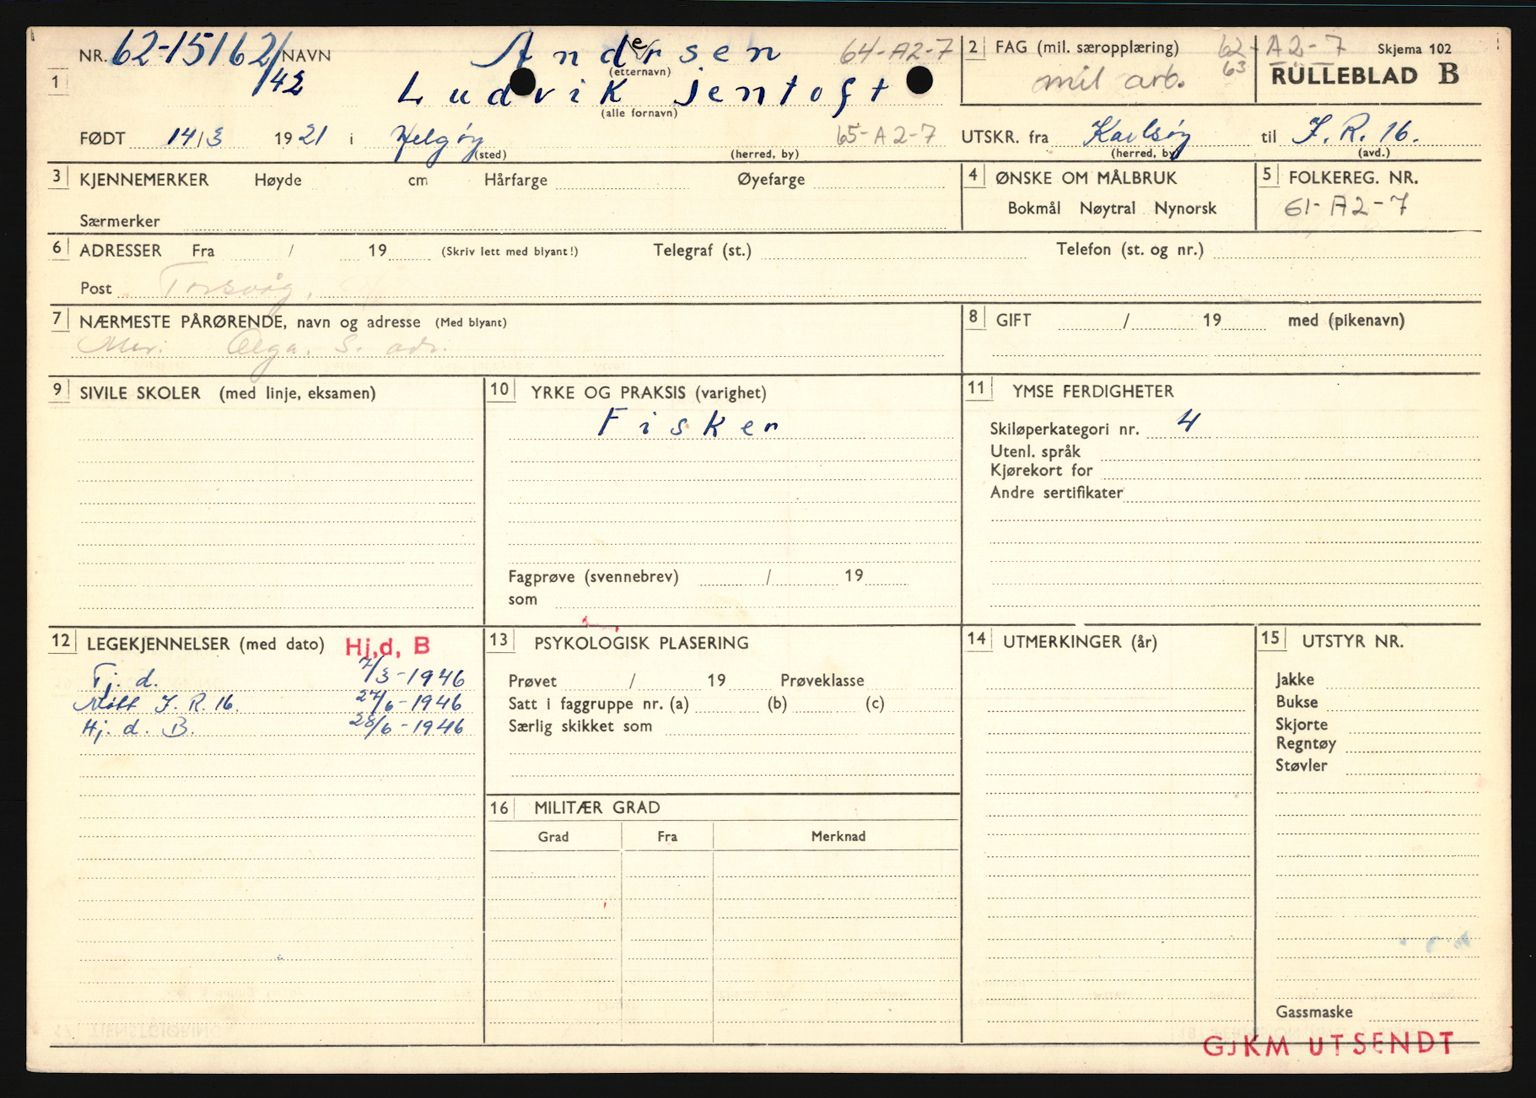 NR. 62-15162/42 NAVN Andersen 64-A2-7
(etternavn)
1 Ludvik Jentoft
(alle fornavn)
FØDT 14/3 1921 i Helgøy 65-A2-7
(sted) (herred, by)
2 FAG (mil. særopplæring) 62-A2-7 Skjema 102
63
mil arb. RULLEBLAD B
UTSKR. fra Karlsøy til J.R.16.
(herred, by) (avd.)
3 KJENNEMERKER Høyde cm Hårfarge Øyefarge
Særmerker
4 ØNSKE OM MÅLBRUK
Bokmål Nøytral Nynorsk
5 FOLKEREG. NR.
61-A2-7
6 ADRESSER Fra / 19 (Skriv lett med blyant!) Telegraf (st.) Telefon (st. og nr.)
Post Torsvåg.
7 NÆRMESTE PÅRØRENDE, navn og adresse (Med blyant)
Mor. Olga. S. adr.
8 GIFT / 19 med (pikenavn)
9 SIVILE SKOLER (med linje, eksamen)
10 YRKE OG PRAKSIS (varighet)
Fisker
Fagprøve (svennebrev) / 19
som
11 YMSE FERDIGHETER
Skiløperkategori nr. 4
Utenl. språk
Kjørekort for
Andre sertifikater
12 LEGEKJENNELSER (med dato) Hj,d, B
Tj. d. 7/3-1946
Møtt J.R.16. 27/6-1946
Hj. d. B. 28/6-1946
13 PSYKOLOGISK PLASERING
Prøvet / 19 Prøveklasse
Satt i faggruppe nr. (a) (b) (c)
Særlig skikket som
14 UTMERKINGER (år)
15 UTSTYR NR.
Jakke
Bukse
Skjorte
Regntøy
Støvler
Gassmaske
16 MILITÆR GRAD
Grad Fra Merknad
GJKM UTSENDT